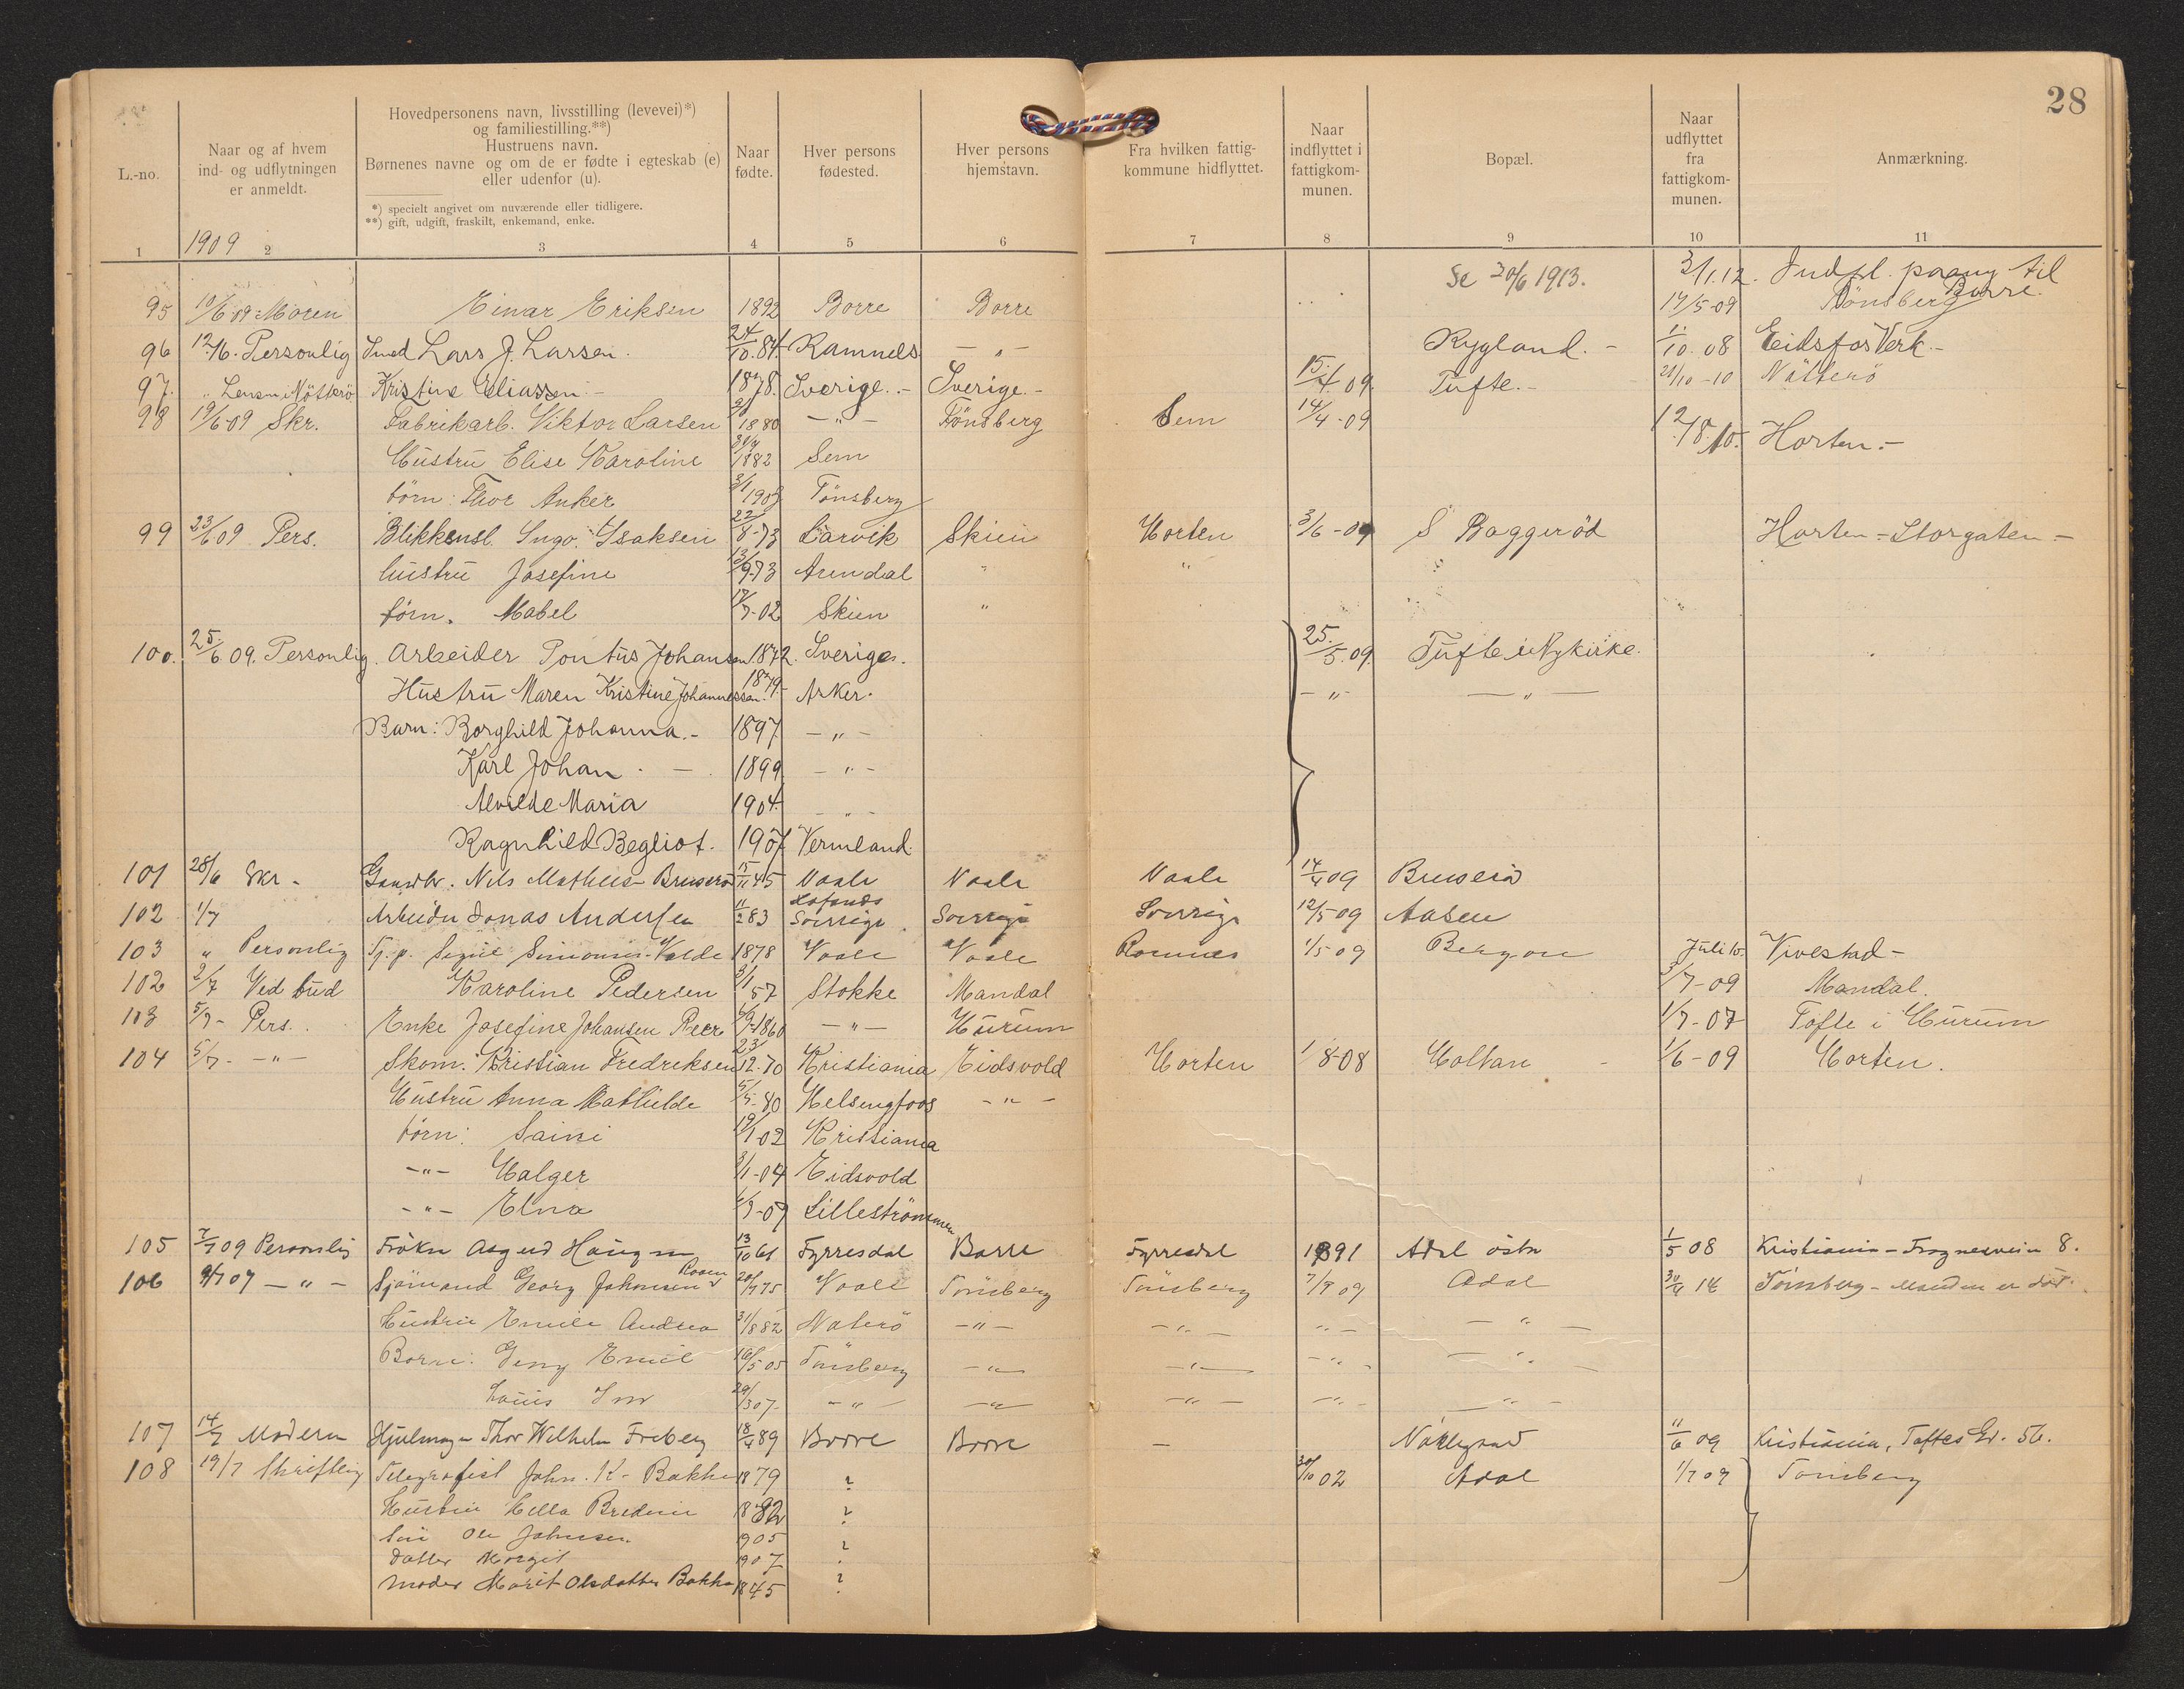 28
L.-no.
Naar og af hvem ind- og udflytningen er anmeldt.
Hovedpersonens navn, livsstilling (levevei)*) og familiestilling.**)
Hustruens navn.
Børnenes navne og om de er fødte i egteskab (e) eller udenfor (u).
*) specielt angivet om nuværende eller tidligere.
**) gift, udgift, fraskilt, enkemand, enke.
Naar fødte.
Hver persons fødested.
Hver persons hjemstavn.
Fra hvilken fattigkommune hidflyttet.
Naar indflyttet i fattigkommunen.
Bopæl.
Naar udflyttet fra fattigkommunen.
Anmærkning.
1 2 3 4 5 6 7 8 9 10 11
1909
Se 30/6 1913. 3/1.12. Indfl. paany til Borre.
95 10/6 09 Moren Einar Eriksen 1892 Borre Borre 17/5-09 Tönsberg
96 12/6. Personlig Smed Lars J. Larsen. 24/10.84 Ramnes — „ — Rygland. - 1./10.08 Eidsfos Verk.-
97. „ Lensm. i Nötterö Kristine Eliassen - 1878. Sverige.- Sverige.- 15./4 09. Tufte.- 21/10-10 Nötterö
98 19/6-09 Skr. Fabrikarb. Viktor Larsen 1880 — „ — Tönsberg Sem 14/4-09 12/8.10. Horten.-
Hustru Elise Karoline 1882 Sem
börn: Thor Anker 3/1 1909 Tönsberg
99 23/6 09 Pers. Blikkensl. Ingv. Isaksen 22/8-73 Larvik Skien Horten 3/6-09 S Baggeröd Horten - Storgaten -
hustru Josefine 13/9-73 Arendal " "
börn. Mabel 17/7-02 Skien "
100. 25./6 09. Personlig. Arbeider Pontus Johansen 1872. Sverige. 25./5.09. Tufte i Nykirke.
Hustru Maren Kristine Johannessen. 1879- Aker. - „ - — „ —
Barn: Borghild Johanna.- 1897 - „ -
Karl Johan - 1899 - „ -
Alvilde Maria 1904. - „ -
Ragnhild Begliot. 1907 Vermland.
101 28/6 Skr. Gaardbr. Nils Mathias Bruserö 15/11 45 Vaale Vaale Vaale 14/4 09 Bruserö
102 1/7 Arbeider Jonas Andersen 11/2 83 Sverrige Sverrige Sverrige 12/5-09 Aasen
103 „ Personlig Tj.p. Signe Simonsen Valde 1878 Vaale Vaale Ramnes 1/5 09 Bergan Juli 10. Vivestad -
102 2/7 Ved bud Karoline Pedersen 3/1 57 Stokke Mandal 3/7-09 Mandal.
103 5/7- Pers. Enke Josefine Johansen Reer 6/9-1860 — „ — Hurum 1/7-07 Tofte i Hurum
104 5/7- - „ - Skom. Kristian Fredriksen 23/12.70 Kristiania Eidsvold Horten 1/8-08 Holtan 1/6-09 Horten.
Hustru Anna Mathilde 5/5-80 Helsengfors - „ -
börn: Saini 19/1 02 Kristiania
- „ - Halger 3/1-04 Eidsvold
- „ - Elna 6/9-07 Lilleströmmen
105 7/7 09 Personlig Fröken Asgerd Haugen 13/10 61 Fyrresdal Borre Fyrresdal 1891 Adal östre 1/5 08 Kristiania - Frognerveien 8.
106 9/7 07 - „ - Sjömand Georg Johansen 20/7 75 Vaale Tönsberg Tönsberg 7/7 09 Adal 30/4 14 Tönsberg - Manden er död.
Hustru Emile Andrea 31/8 82 Nöterö - „ - - „ - - „ - - „ -
Börn: Geny Emil 16/5 05 Tönsberg - „ - - „ - - „ - - „ -
Louis 29/3 07- - „ - - „ - - „ - - „ - - „ -
107 14/7 Moderen Hjulmager Thor Wilhelm Freberg 18/4 89 Borre Borre - Nordgaard 11/6 09 Kristiania, Toftes Gd. 56.
108 19/7 Skriftlig Telegrafist John. K. Bakke 1879 ? 30/10 02 Adal 1/7 09 Tönsberg
Hustru Hella 1882 ?
Sön Ole Johnsen. 1905 ?
Datter Margit 1907 ?
Moder Marit Olsdatter Bakke 1845 ?